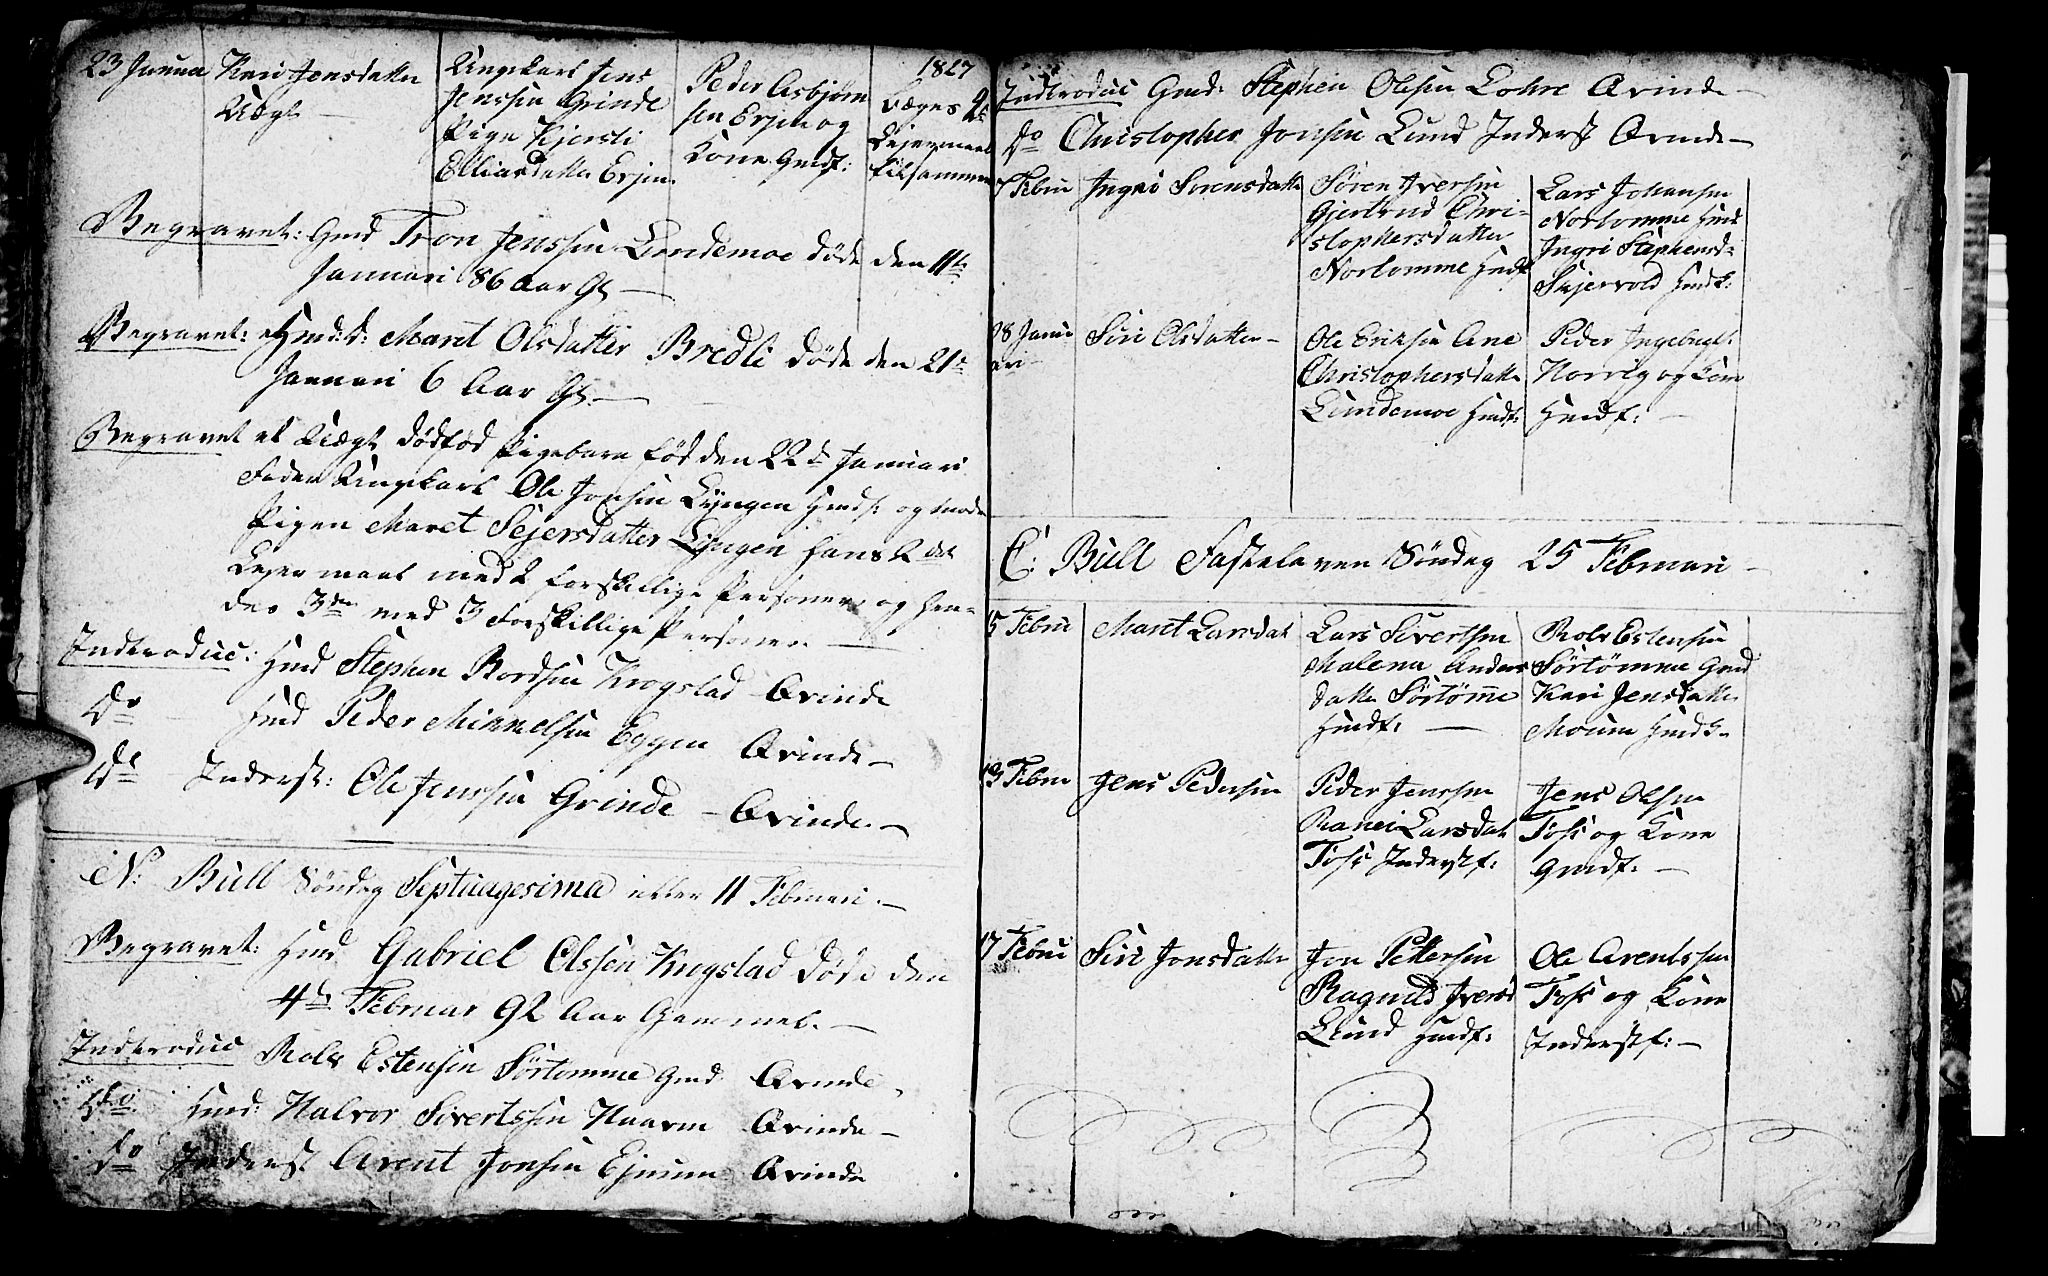 1827
23 Januar Kari Jensdatter
Uægt
Ungkarl Jens
Jenssen Grinde
Pige Kjersti
Elliasdatter Ersen
Peder Asbjørn
sen Ersen og
Kone Gmdf:
Begges 2
Leiermaal
tilsammen
Begravet: Gmd Tron Jenssen Lundemoe døde den 11te
Januari 86 Aar Gl. —
Begravet: Hmd: d: Maret Olsdatter Bredli døde den 21de
Januari 6 Aar Gl. —
Begravet et Uægte dødfød Pigebarn fød den 22de Januari
Fader Ungkarl Ole Jonsen Lyngen Hmds: og Moder
Pigen Maret Sejersdatter Lyngen hans 2det
Leiermaal med 2 forskillige Personer, og hen-
des 3die med 3 forskillige Personer. —
Indtroduc: Hmd Stephen Bordsen Krogstad Qvinde
do Hmd Peder Mikkelsen Eggen Qvinde —
do Inderst: Ole Jenssen Grinde — Qvinde —
N: Bull Søndag Septuagesima 11 Februari. —
Begravet: Hmd Gabriel Olssen Krogstad døde den
4de Februar 92 Aar Gammel. —
Indtroduc Rolv Estensen Sørtømme Gmd Qvinde
do Hmd: Halvor Sivertssen Qvinde —
do Inderst Arent Jonsen Qvinde
Indtroduc Gmd: Stephen Olesen Lohre Qvinde —
do Christopher Jonsen Lund Inderst Qvinde —
7 Febru Ingri Sørensdatter
Søren Iversen
Gjertrud Chri-
stophersdatter
Nortomme Hmdf
Lars Johansen
Nortomme Hmd
Ingri Stephensd:
Hmdk:
28 Janu
ari
Siri Olsdatter —
Ole Eriksen Ane
Christophersdatter
Lundemoe Hmdf:
Peder Ingebrigts:
Horrig og Kone
Hmdf: —
C: Bull Fastelaven Søndag 25 Februari —
5 Febru Maret Larsdat
Lars Sivertsen
Malena Anders
datter Sørtømme
Hmdf: —
Rolv Estensen
Sørtømme Gmd
Kari Jensdatter
Moum Hmds —
13 Febru Jens Pedersen
Peder Jenssen
Ranei Larsdat
Foss Inderstf:
Jens Olsen
Foss og Kone
Gmdf: —
17 Febru Siri Jonsdatter
Jon Pettersen
Ragnild Iversd
Lund Hmdf:
Ole Arentssen
Foss og Kone
Inderstf: —